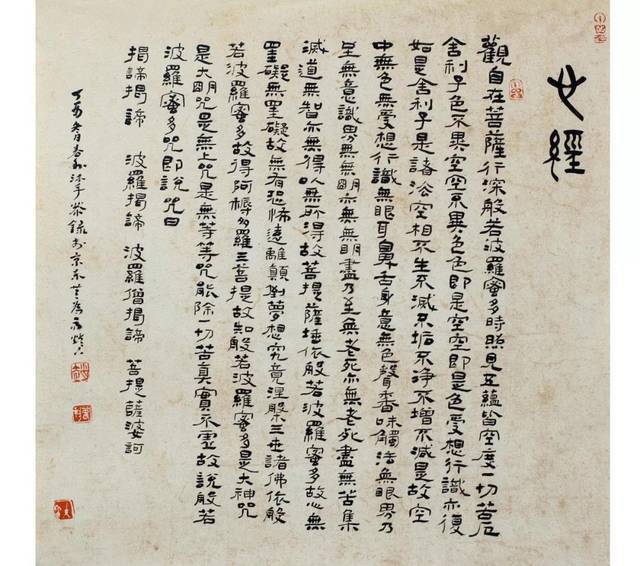 心經
觀自在菩薩行深般若波羅蜜多時照見五蘊皆空度一切苦厄
舍利子色不異空空不異色色即是空空即是色受想行識亦復
如是舍利子是諸法空相不生不滅不垢不淨不增不減是故空
中無色無受想行識無眼耳鼻舌身意無色聲香味觸法無眼界乃
至無意識界無無明亦無無明盡乃至無老死亦無老死盡無苦集
滅道無智亦無得以無所得故菩提薩埵依般若波羅蜜多故心無
罣礙無罣礙故無有恐怖遠離顛倒夢想究竟涅槃三世諸佛依般
若波羅蜜多故得阿耨多羅三菩提故知般若波羅蜜多是大神咒
是大明咒是無上咒是無等等咒能除一切苦真實不虛故說般若
波羅蜜多咒即說咒曰
揭諦揭諦 波羅揭諦 波羅僧揭諦 菩提薩婆訶
沐手恭錄於京東